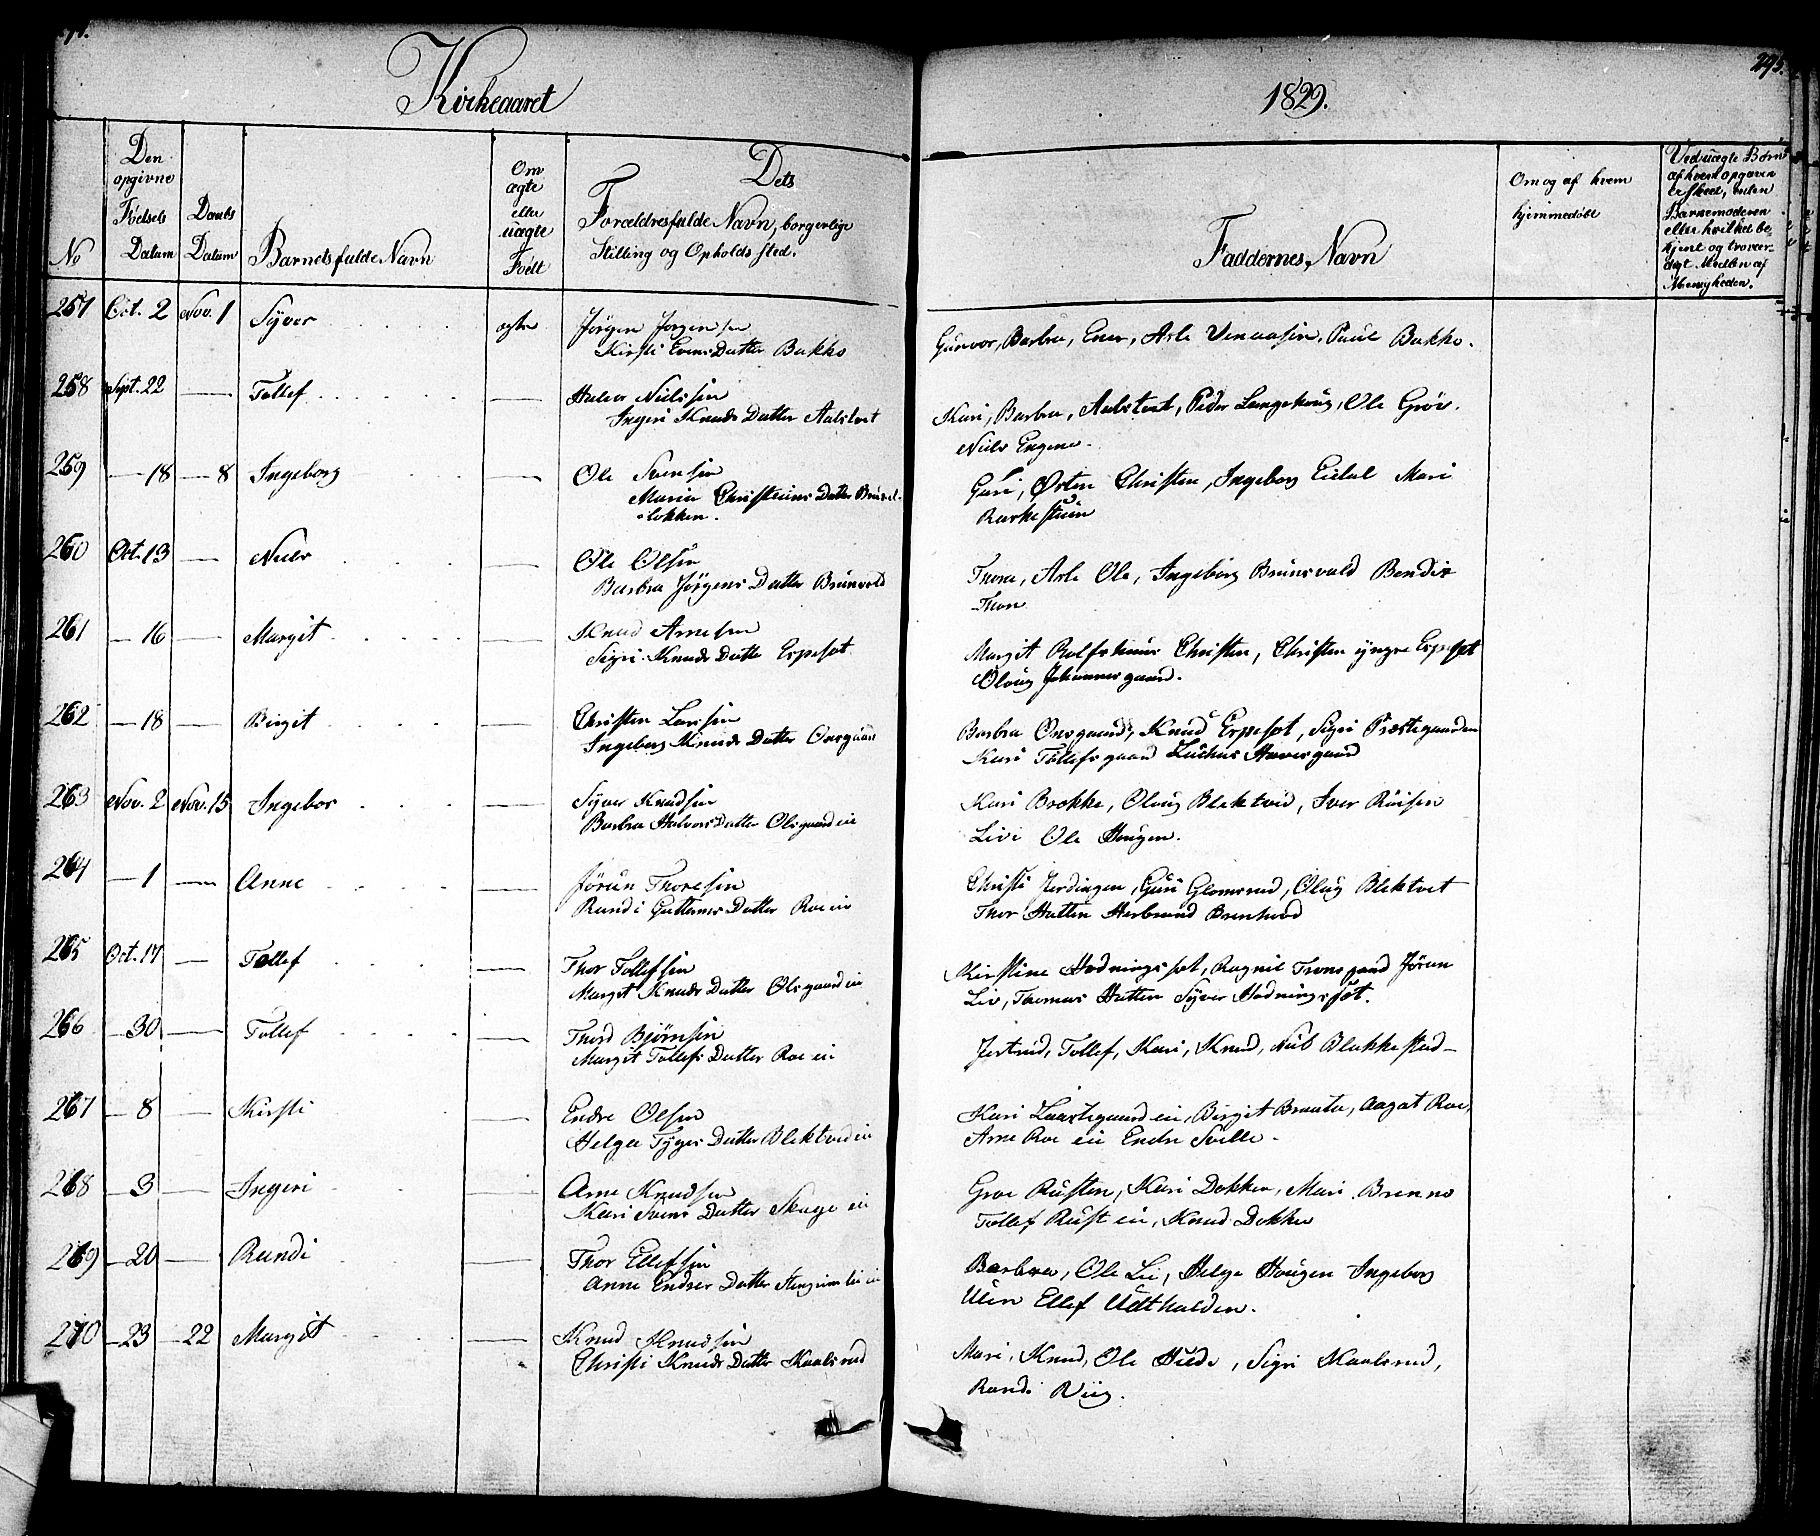 Kirkeaaret
1829.
295.
No
Den opgivne Födsels Datum
Daabs Datum
Barnets fulde Navn
Om ægte eller uægte Födt
Dets
Forældres fulde Navn, borgerlige
Stilling og Opholds sted.
Faddernes Navn
Om og af hvem
hjemmedöbt
Ved uægte Børn
af hvem opgaven
er skeet, enten
Barnemoderen
eller hvilket be-
kjent og trovær-
digt Medlem af
Menigheden.
257 Oct. 2 Nov. 1 Syver ægte Jörgen Jorgensen
Kirsti Evens Datter Bakko
Gunvor, Barbra, Ener, Asle Paul Bakko.
258 Sept. 22 — Tollef — Halvor Nielssen
Ingeri Knuds Datter Aalstvet
Kari, Barbra, Aalstvet, Peder Ole Gröv.
Niels Engene.
259 — 18 — 8 Ingeborg — Ole Svensen
Maria Christens Datter
lokken.
Guri, Østen Christen, Ingeborg Mari
260 Oct. 13 — Niels — Ole Olsen
Barbra Jörgens Datter Brunvold
Thora, Asle Ole, Ingeborg Brunsvold Bendix
Thon
261 — 16 — Margit — Knud Arnesen
Sigri Knuds Datte Espeset
Margit Rolfshuus Christen, Christen yngre Espeset
Oloug Johannesgaard.
262 — 18 — Birgit — Christen Larssen
Ingeborg Knuds Datter
Barbra Knud Espeset, Sigri Præstegaarden
Kari Tollefsgaard
263 Nov. 2 Nov. 15 Ingebor — Syver Knudsen
Barbra Halvors Datter Olsgaard eie
Kari Brokke, Oloug Blektvid, Iver Ruisen
Livi Ole Hougen.
264 — 1 — Anne — Jörun Thoresen
Randi Guttorms Datter Roe eie
Christi Jordingen, Guri Glomsrud, Oloug Blektvet
Thor Hatten Herbrand
265 Oct. 17 — Tollef — Thor Tollefsen
Margit Knuds Datter Olsgaard eie
Kirstine Hodningsset, Ragnil Jöran
Liv, Thomas Hatten Syver Hodningsset.
266 — 30 — Tollef — Thord Bjørnsen
Margit Tollefs Datter Roe eie
Jertrud, Tollef, Kari, Knud, Nub Blakkestad
267 — 8 — Kirsti — Endre Olsen
Helga Tyges Datter Blektved eie
Kari eie, Birgit Braata, Aagot Roe,
Arne Roe eie Endre Sville.
268 — 3 — Ingeri — Arne Knudsen
Kari Svens Datter Skaga eie
Groe Rusten, Kari Dokken, Mari Brenno
Tollef Rust eie, Knud Dokken
269 — 20 — Randi — Thor Ellefsen
Anne Endres Datter eie
Barbra, Ole Lii, Helge Hougen Ingeborg
Ulen Ellef
270 — 23 — 22 Margit — Knud Knudsen
Christi Knuds Datter Kaalsrud
Mari, Knud, Ole Hilde, Sigri Kaalsrud,
Randi Riig.